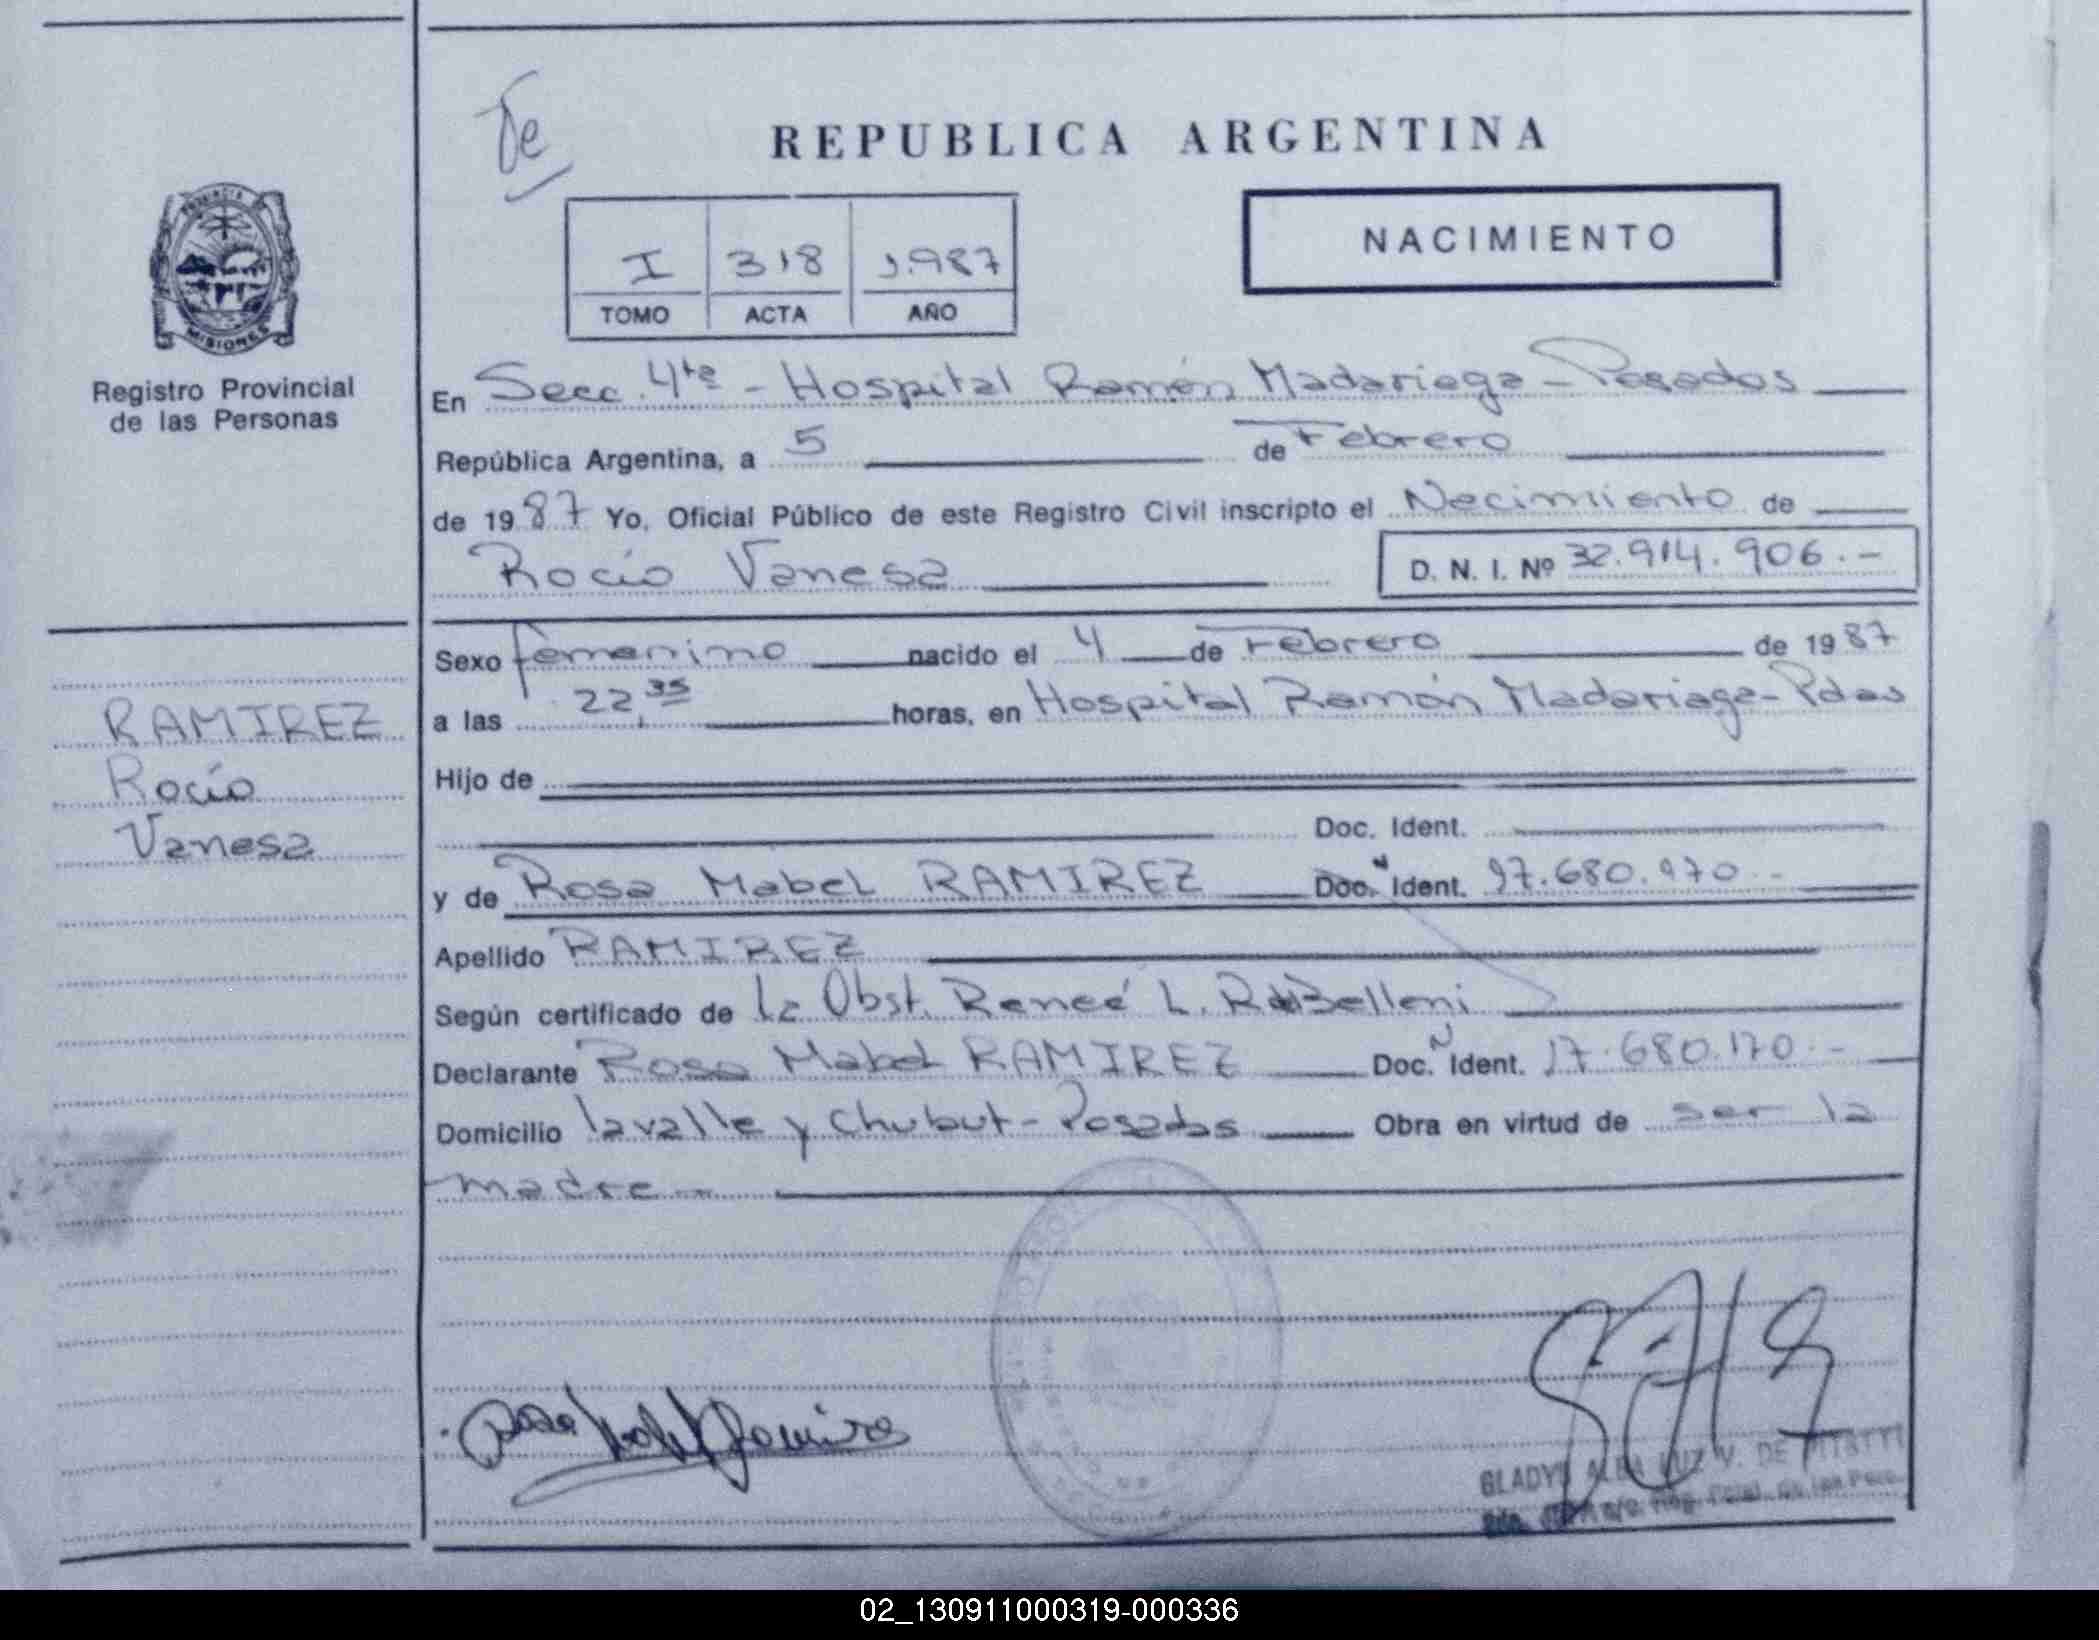 Te
REPUBLICA ARGENTINA
NACIMIENTO
I 318 1.987
TOMO ACTA AÑO
PROVINCIA
MISIONES
Registro Provincial
de las Personas
En Secc. 4ta - Hospital Ramón Madariaga - Posadas
República Argentina, a 5 de Febrero
de 1987 Yo, Oficial Público de este Registro Civil inscripto el Nacimiento de
Rocío Vanesa D. N. I. Nº 32.914.906.-
Sexo femenino nacido el 4 de Febrero de 1987
a las 22,35 horas, en Hospital Ramón Madariaga - Pdas
Hijo de
Doc. Ident.
y de Rosa Mabel RAMIREZ Doc. N Ident. 17.680.170.-
Apellido RAMIREZ
Según certificado de la Obst. Reneé L. R. de Belleni
Declarante Rosa Mabel RAMIREZ Doc. N Ident. 17.680.170.-
Domicilio Lavalle y Chubut - Posadas Obra en virtud de ser la
madre.-
RAMIREZ
Rocío
Vanesa
Rosa Mabel Ramirez
GLADYS ALBA LUZ V. DE
02_130911000319-000336